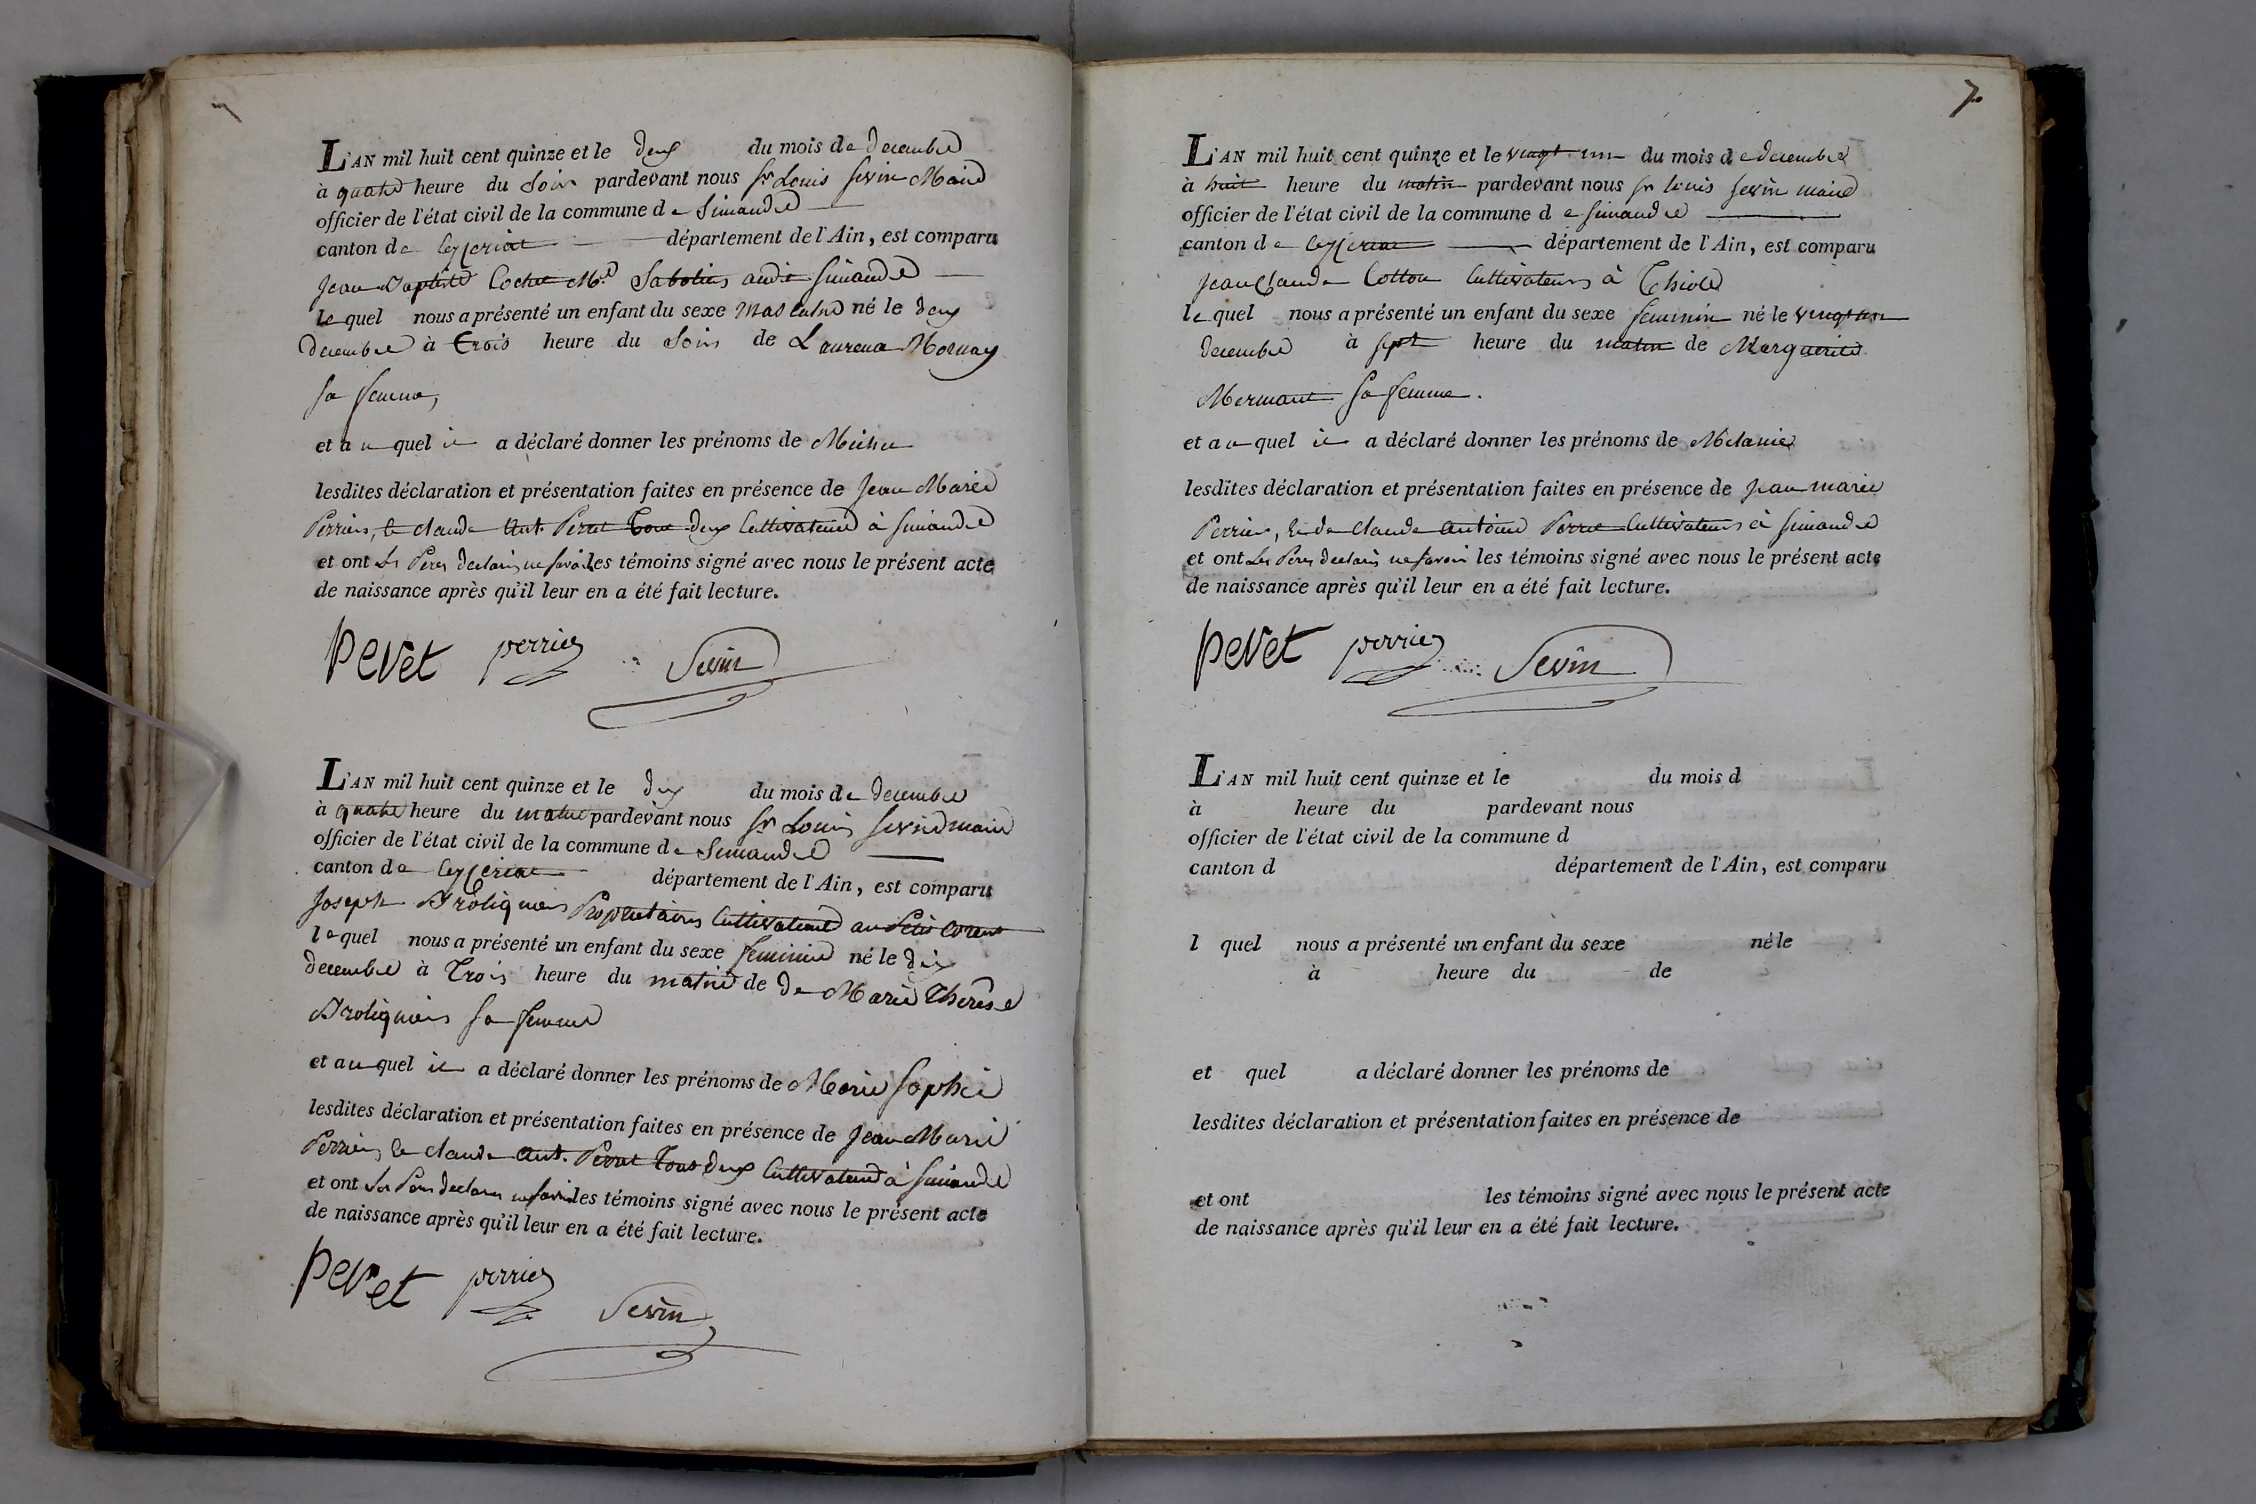 L'AN mil huit cent quinze et le deux du mois de decembre
à quatre heure du soir pardevant nous Sr Louis Sevin Maire
officier de l'état civil de la commune de Simandre
canton de Ceyzeriat département de l'Ain, est comparu
Jean Baptiste Cochet Md Sabotier audit Simandre
le quel nous a présenté un enfant du sexe masculin né le deux
decembre à trois heure du soir de Laurence Mornay
sa femme,
et au quel il a déclaré donner les prénoms de
lesdites déclaration et présentation faites en présence de Jean Marie
Perrier, & claude Ant. Peret tous deux Cultivateurs à Simandre
et ont les témoins signé avec nous le présent acte
de naissance après qu'il leur en a été fait lecture.
pevet perrier Sevin
L'AN mil huit cent quinze et le du mois de decembre
à quatre heure du matin pardevant nous Sr Louis Sevin maire
officier de l'état civil de la commune de Simandre
canton de Ceyzeriat département de l'Ain, est comparu
Joseph Broliquier Proprietaire Cultivateur au
le quel nous a présenté un enfant du sexe feminin né le
decembre à trois heure du matin de de Marie Therese
Broliquier sa femme
et au quel il a déclaré donner les prénoms de Marie Sophie
lesdites déclaration et présentation faites en présence de Jean Marie
Perrier, & claude Ant. Peret tous deux Cultivateurs à Simandre
et ont les témoins signé avec nous le présent acte
de naissance après qu'il leur en a été fait lecture.
pevet perrier
Sevin
7.
L'AN mil huit cent quinze et le vingt un du mois de decembre
à huit heure du matin pardevant nous Sr louis Sevin maire
officier de l'état civil de la commune de Simandre
canton de Ceyzeriat département de l'Ain, est comparu
Jean Claude Cottou Cultivateur à Thiole
le quel nous a présenté un enfant du sexe feminin né le vingt un
decembre à sept heure du matin de Marguerite
Mermant sa femme.
et au quel il a déclaré donner les prénoms de Melanie
lesdites déclaration et présentation faites en présence de Jean marie
Perrier, & de Claude antoine Cultivateurs à Simandre
et ont les témoins signé avec nous le présent acte
de naissance après qu'il leur en a été fait lecture.
pevet perrier Sevin
L'AN mil huit cent quinze et le du mois d
à heure du pardevant nous
officier de l'état civil de la commune d
canton d département de l'Ain, est comparu
l quel nous a présenté un enfant du sexe né le
à heure du de
et quel a déclaré donner les prénoms de
lesdites déclaration et présentation faites en présence de
et ont les témoins signé avec nous le présent acte
de naissance après qu'il leur en a été fait lecture.